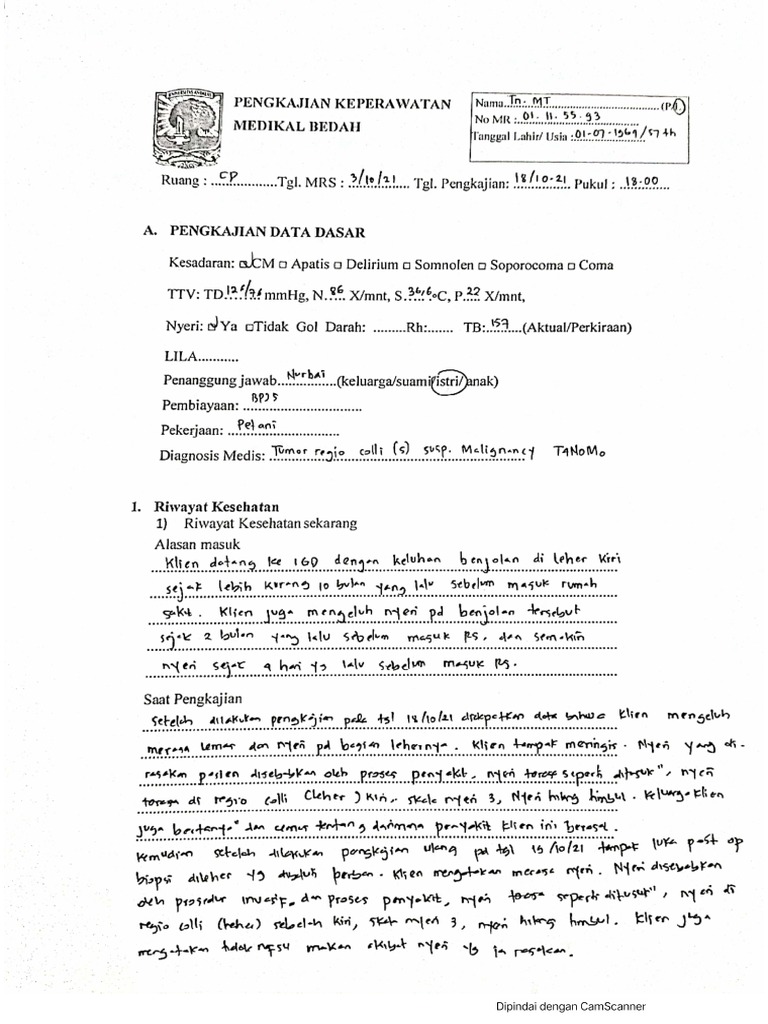 PENGKAJIAN KEPERAWATAN
MEDIKAL BEDAH
Nama..Tn. MT......(P/L)
No MR :..01. 11. 55. 93
Tanggal Lahir/ Usia :01-07-1969/57 th
Ruang : ..CP........Tgl. MRS : 3/10/21.... Tgl. Pengkajian: 18/10-21 Pukul : .18.00....
A. PENGKAJIAN DATA DASAR
Kesadaran: ☑CM □ Apatis □ Delirium □ Somnolen □ Soporocoma □ Coma
TTV: TD.126/76 mmHg, N..86 X/mnt, S.36,6°C, P.22 X/mnt,
Nyeri: ☑Ya □Tidak Gol Darah: .........Rh:....... TB:.157...(Aktual/Perkiraan)
LILA...........
Penanggung jawab..Nurbai....(keluarga/suami/istri/anak)
Pembiayaan: ..BPJS......
Pekerjaan: ..Petani......
Diagnosis Medis: Tumor regio colli (s) susp. Malignancy T4N0M0
1. Riwayat Kesehatan
1) Riwayat Kesehatan sekarang
Alasan masuk
Klien datang ke IGD dengan keluhan benjolan di leher kiri
sejak lebih kurang 10 bulan yang lalu sebelum masuk rumah
sakit. Klien juga mengeluh nyeri pd benjolan tersebut
sejak 2 bulan yang lalu sebelum masuk RS, dan semakin
nyeri sejak 4 hari yg lalu sebelum masuk RS.
Saat Pengkajian
Setelah dilakukan pengkajian pada tgl 18/10/21 didapatkan data bahwa klien mengeluh
merasa lemas dan nyeri pd bagian lehernya. Klien tampak meringis. Nyeri yang di-
rasakan pasien disebabkan oleh proses penyakit, nyeri terasa seperti ditusuk", nyeri
terasa di regio colli (leher) kiri, skala nyeri 3, Nyeri hilang timbul. Keluarga klien
juga bertanya" dan cemas tentang darimana penyakit klien ini berasal.
Kemudian setelah dilakukan pengkajian ulang pd tgl 19/10/21 tampak luka post op
biopsi dileher yg dibaluh perban. Klien mengatakan merasa nyeri. Nyeri disebabkan
oleh prosedur invasif dan proses penyakit, nyeri terasa seperti ditusuk", nyeri di
regio colli (leher) sebelah kiri, skala nyeri 3, nyeri hilang timbul. Klien juga
mengatakan tidak nafsu makan akibat nyeri yg ia rasakan.
Dipindai dengan CamScanner